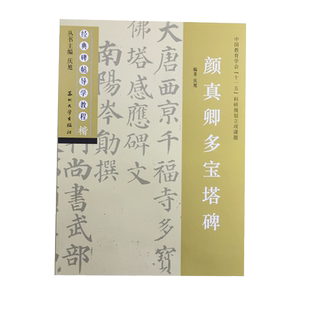 中国教育学会“十一五”科研规划立项课题
颜真卿多宝塔碑
编著 庆旭
大唐西京千福寺多寶
佛塔感應碑文
南陽岑勛撰
尚書武部
经典碑帖导学教程 楷
丛书主编 庆旭
苏州大学出版社